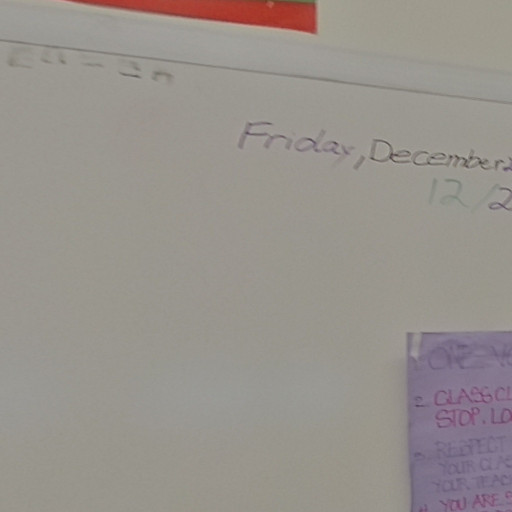 Friday, December 2
12/2
CLASS CL
STOP, LO
RESPECT
YOUR CLAS
YOUR TEAC
YOU ARE